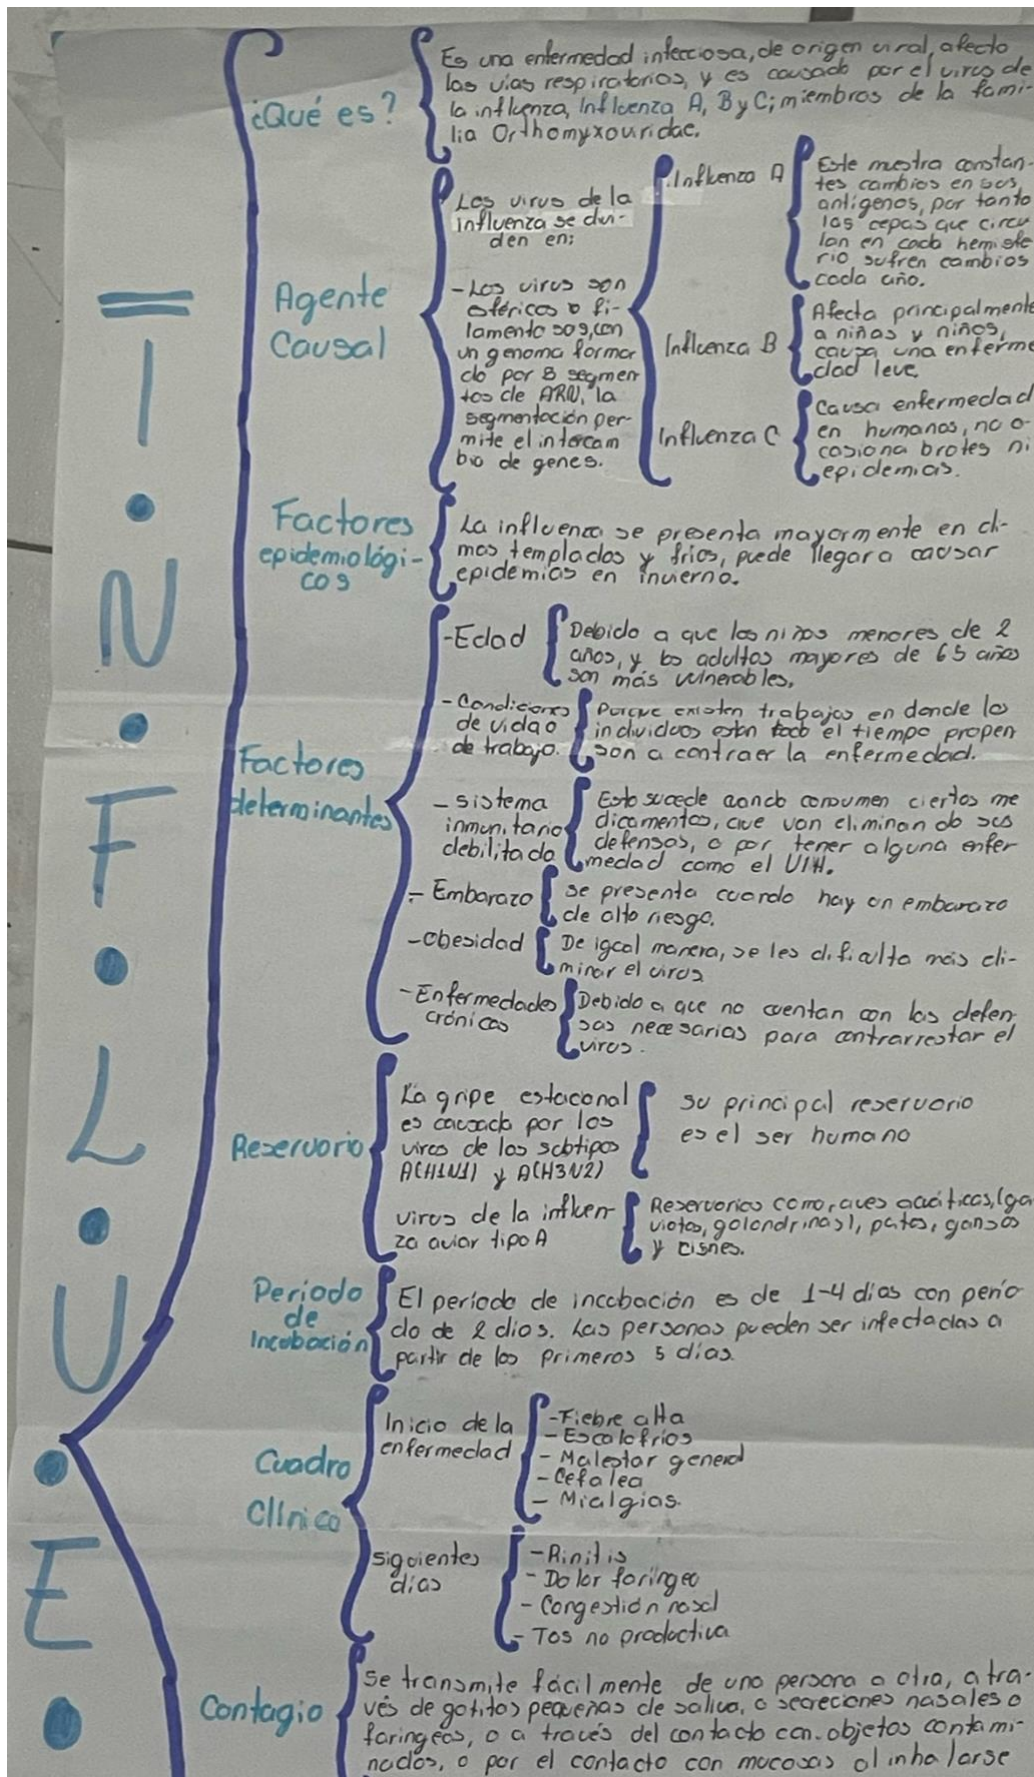 I
•
N
•
F
•
L
•
U
•
E
•
¿Qué es?
Es una enfermedad infecciosa, de origen viral, afecta
las vías respiratorias, y es causado por el virus de
la influenza, Influenza A, B y C; miembros de la fami-
lia Orthomyxouridae.
Agente
Causal
Los virus de la
influenza se divi-
den en:
-Los virus son
esféricos o fi-
lamentosos, con
un genoma forma
do por 8 segmen
tos de ARN, la
segmentación per-
mite el intercam
bio de genes.
Influenza A
Este muestra constan-
tes cambios en sus
antígenos, por tanto
las cepas que circu
lan en cada hemisfe
rio sufren cambios
cada año.
Influenza B
Afecta principalmente
a niñas y niños,
causa una enferme
dad leve.
Influenza C
Causa enfermedad
en humanos, no o-
casiona brotes ni
epidemias.
Factores
epidemiológi-
cos
La influenza se presenta mayormente en cli-
mas templados y fríos, puede llegar a causar
epidemias en invierno.
Factores
determinantes
-Edad
Debido a que los niños menores de 2
años, y los adultos mayores de 65 años
son más vulnerables.
-Condiciones
de vida o
de trabajo.
Porque existen trabajos en donde los
individuos estan todo el tiempo propen
son a contraer la enfermedad.
-sistema
inmunitario
debilitado
Esto sucede cuando consumen ciertos me
dicamentos, que van eliminando sus
defensas, o por tener alguna enfer
medad como el VIH.
-Embarazo
se presenta cuando hay un embarazo
de alto riesgo.
-Obesidad
De igual manera, se les dificulta más eli-
minar el virus
-Enfermedades
crónicas
Debido a que no cuentan con las defen-
sas necesarias para contrarrestar el
virus.
Reservorio
La gripe estacional
es causada por los
virus de los subtipos
A(H1N1) y A(H3N2)
su principal reservorio
es el ser humano
virus de la influen-
za aviar tipo A
Reservorios como, aves acuáticas, (ga
viotas, golondrinas), patos, gansos
y cisnes.
Periodo
de
Incubación
El período de incubación es de 1-4 días con perío
do de 2 días. Las personas pueden ser infectadas a
partir de los primeros 5 días.
Cuadro
Clínico
Inicio de la
enfermedad
-Fiebre alta
-Escalofríos
-Malestar general
-Cefalea
-Mialgias.
siguientes
días
-Rinitis
-Dolor faríngeo
-Congestión nasal
-Tos no productiva
Contagio
se transmite fácilmente de una persona a otra, a tra-
vés de gotitas pequeñas de saliva, o secreciones nasales o
faríngeas, o a través del contacto con objetos contami-
nados, o por el contacto con mucosas al inhalarse